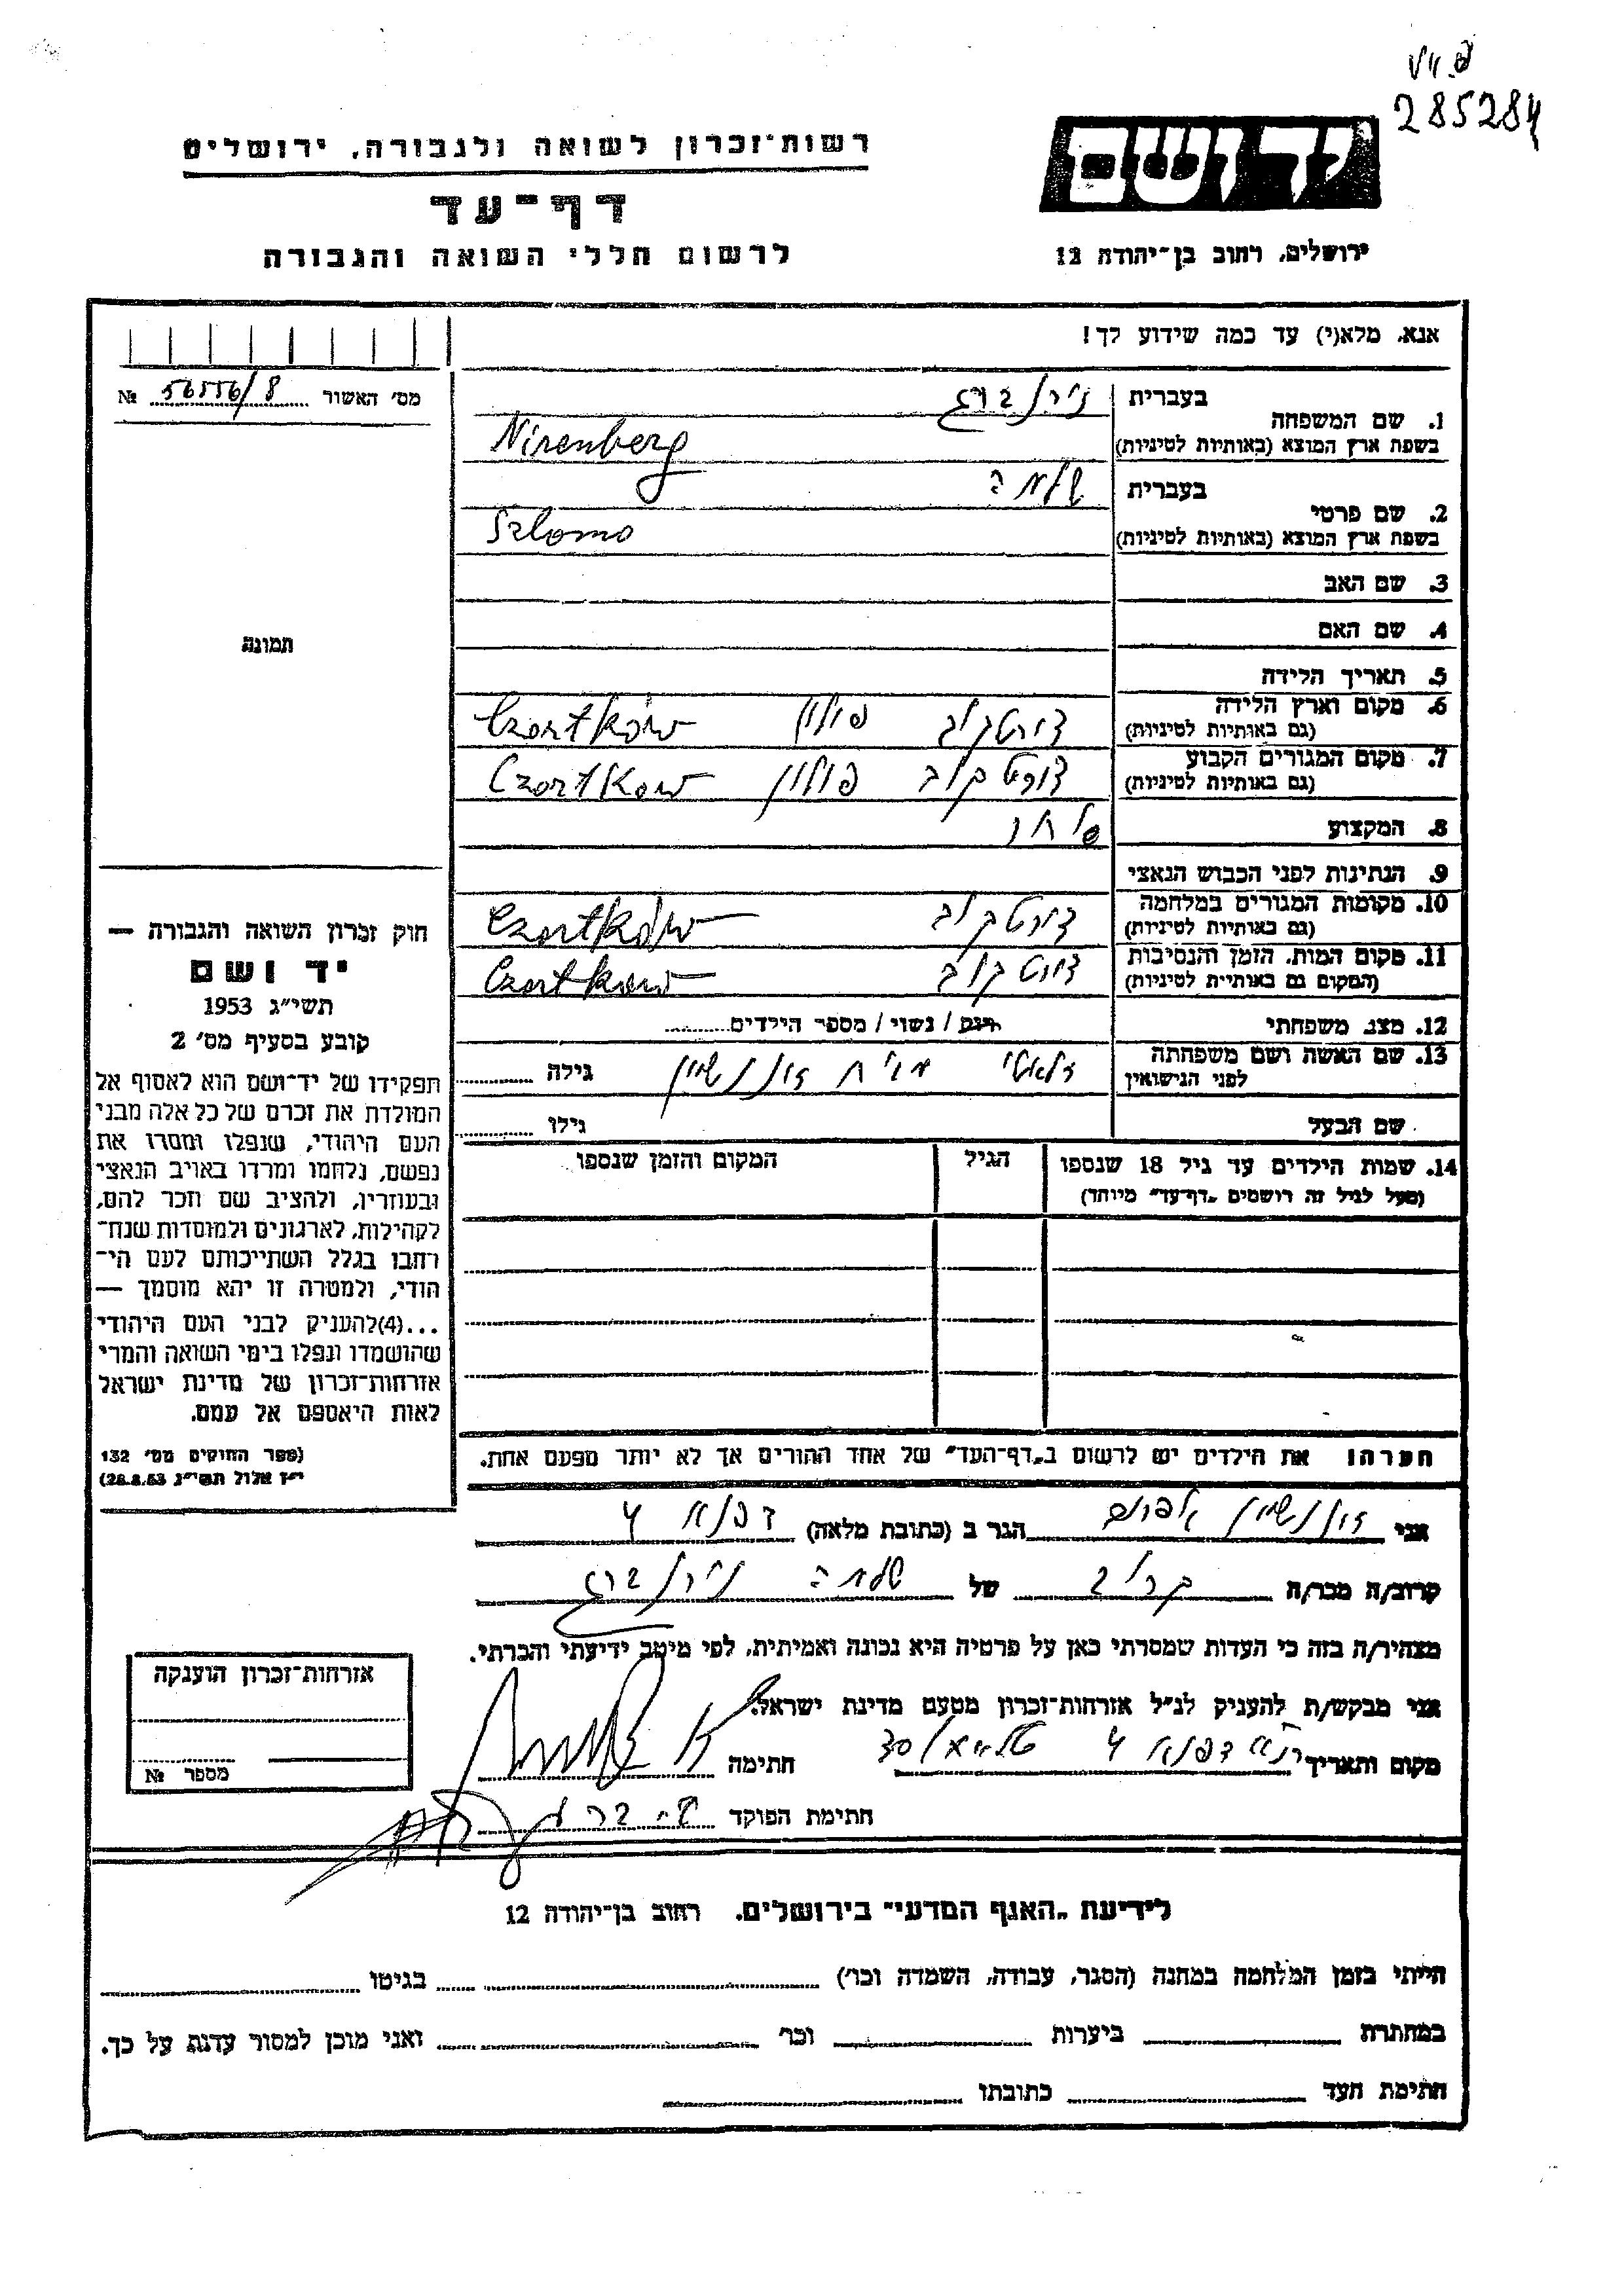 285284
יד ושם
רשות־זכרון לשואה ולגבורה, ירושלים
דף־עד
לרשום חללי השואה והגבורה
ירושלים, רחוב בן־יהודה 12
אנא, מלא(י) עד כמה שידוע לך!
מס׳ האשור 56556/8 №
1. שם המשפחה
בעברית נירנברג
בשפת ארץ המוצא (באותיות לטיניות) Nirenberg
2. שם פרטי
בעברית שלמה
בשפת ארץ המוצא (באותיות לטיניות) Szlomo
3. שם האב
4. שם האם
5. תאריך הלידה
6. מקום וארץ הלידה
(גם באותיות לטיניות)
צורטקוב פולין Czortków
7. מקום המגורים הקבוע
(גם באותיות לטיניות)
צורטקוב פולין Czortków
8. המקצוע
9. הנתינות לפני הכבוש הנאצי
10. מקומות המגורים במלחמה
(גם באותיות לטיניות)
צורטקוב Czortków
11. מקום המות, הזמן והנסיבות
(המקום גם באותיות לטיניות)
צורטקוב Czortków
12. מצב משפחתי
רווק / נשוי / מספר הילדים
13. שם האשה ושם משפחתה
לפני הנישואין
גילה
שם הבעל
גילו
14. שמות הילדים עד גיל 18 שנספו
(מעל לגיל זה רושמים „דף־עד״ מיוחד)
הגיל
המקום והזמן שנספו
הערה: את הילדים יש לרשום ב„דף־העד״ של אחד ההורים אך לא יותר מפעם אחת.
תמונה
חוק זכרון השואה והגבורה —
יד ושם
תשי״ג 1953
קובע בסעיף מס׳ 2
תפקידו של יד־ושם הוא לאסוף אל
המולדת את זכרם של כל אלה מבני
העם היהודי, שנפלו ומסרו את
נפשם, נלחמו ומרדו באויב הנאצי
ובעוזריו, ולהציב שם וזכר להם,
לקהילות, לארגונים ולמוסדות שנח־
רבו בגלל השתייכותם לעם הי־
הודי, ולמטרה זו יהא מוסמך —
...(4)להעניק לבני העם היהודי
שהושמדו ונפלו בימי השואה והמרי
אזרחות־זכרון של מדינת ישראל
לאות היאספם אל עמם.
(ספר החוקים מס׳ 132
י״ז אלול תשי״ג 28.8.53)
אני זוננשיין אפרים הגר ב (כתובת מלאה) דפנא 4
קרוב/ה מכר/ה קרוב של שלמה נירנברג
מצהיר/ה בזה כי העדות שמסרתי כאן על פרטיה היא נכונה ואמיתית, לפי מיטב ידיעתי והכרתי.
אני מבקש/ת להעניק לנ״ל אזרחות־זכרון מטעם מדינת ישראל.
מקום ותאריך דפנא 4
חתימה
חתימת הפוקד
אזרחות־זכרון הוענקה
מספר №
לידיעת „האגף המדעי״ בירושלים. רחוב בן־יהודה 12
הייתי בזמן המלחמה במחנה (הסגר, עבודה, השמדה וכו׳) בגיטו
במחתרת ביערות וכו׳ ואני מוכן למסור עדות על כך.
חתימת העד כתובתו